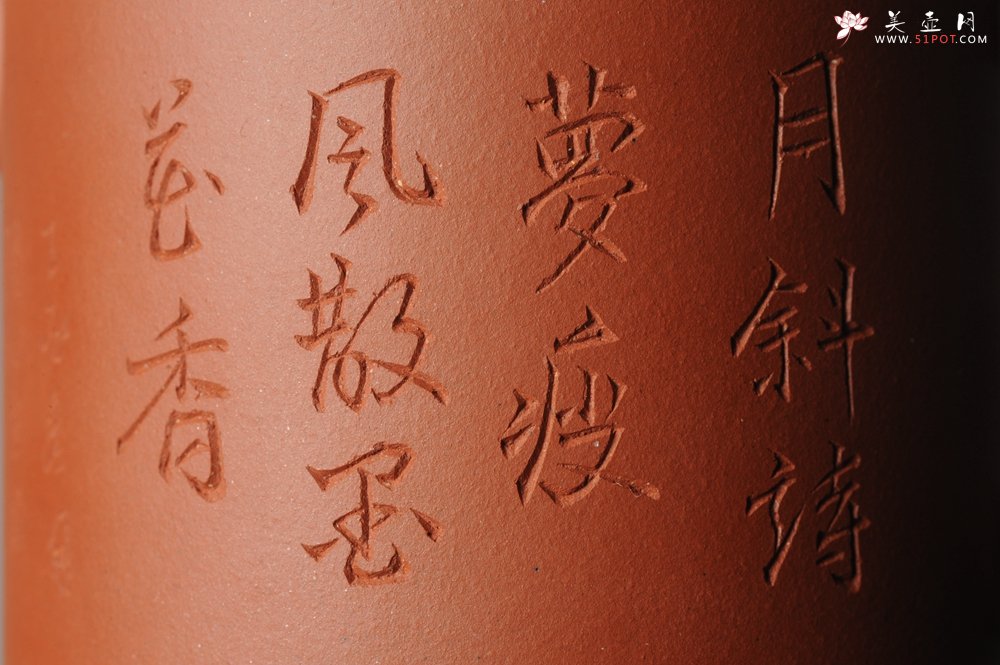 美壶网
WWW.51POT.COM
月斜詩
夢瘦
風散墨
花香